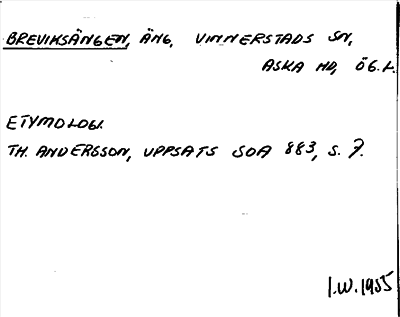 BREVIKSÄNGEN, ÄNG, VINNERSTADS SN,
ASKA HD, ÖG.L.
ETYMOLOGI.
TH. ANDERSSON, UPPSATS SOA 883, S. 7.
I.W. 1955